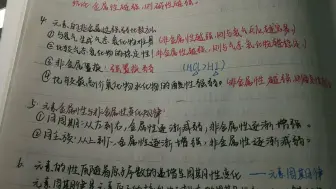 4. 元素的非金属性强弱比较方法
①与氢气生成气态氢化物难易(非金属性越强,则与氢气反应越容易)
②比较气态氢化物的稳定性(非金属性越强,则气态氢化物越稳定)
③非金属置换 强置换弱 (HCl>HI)
④比较最高价氧化物水化物的酸性强弱。(非金属性越强
5. 元素金属性与非金属性递变规律
①同周期:从左到右,金属性逐渐减弱,非金属性逐渐增强。
②同主族:从上到下,金属性逐渐增强,非金属性逐渐减弱。
6. 元素的性质随着原子序数的递增呈周期性变化 ——元素周期律